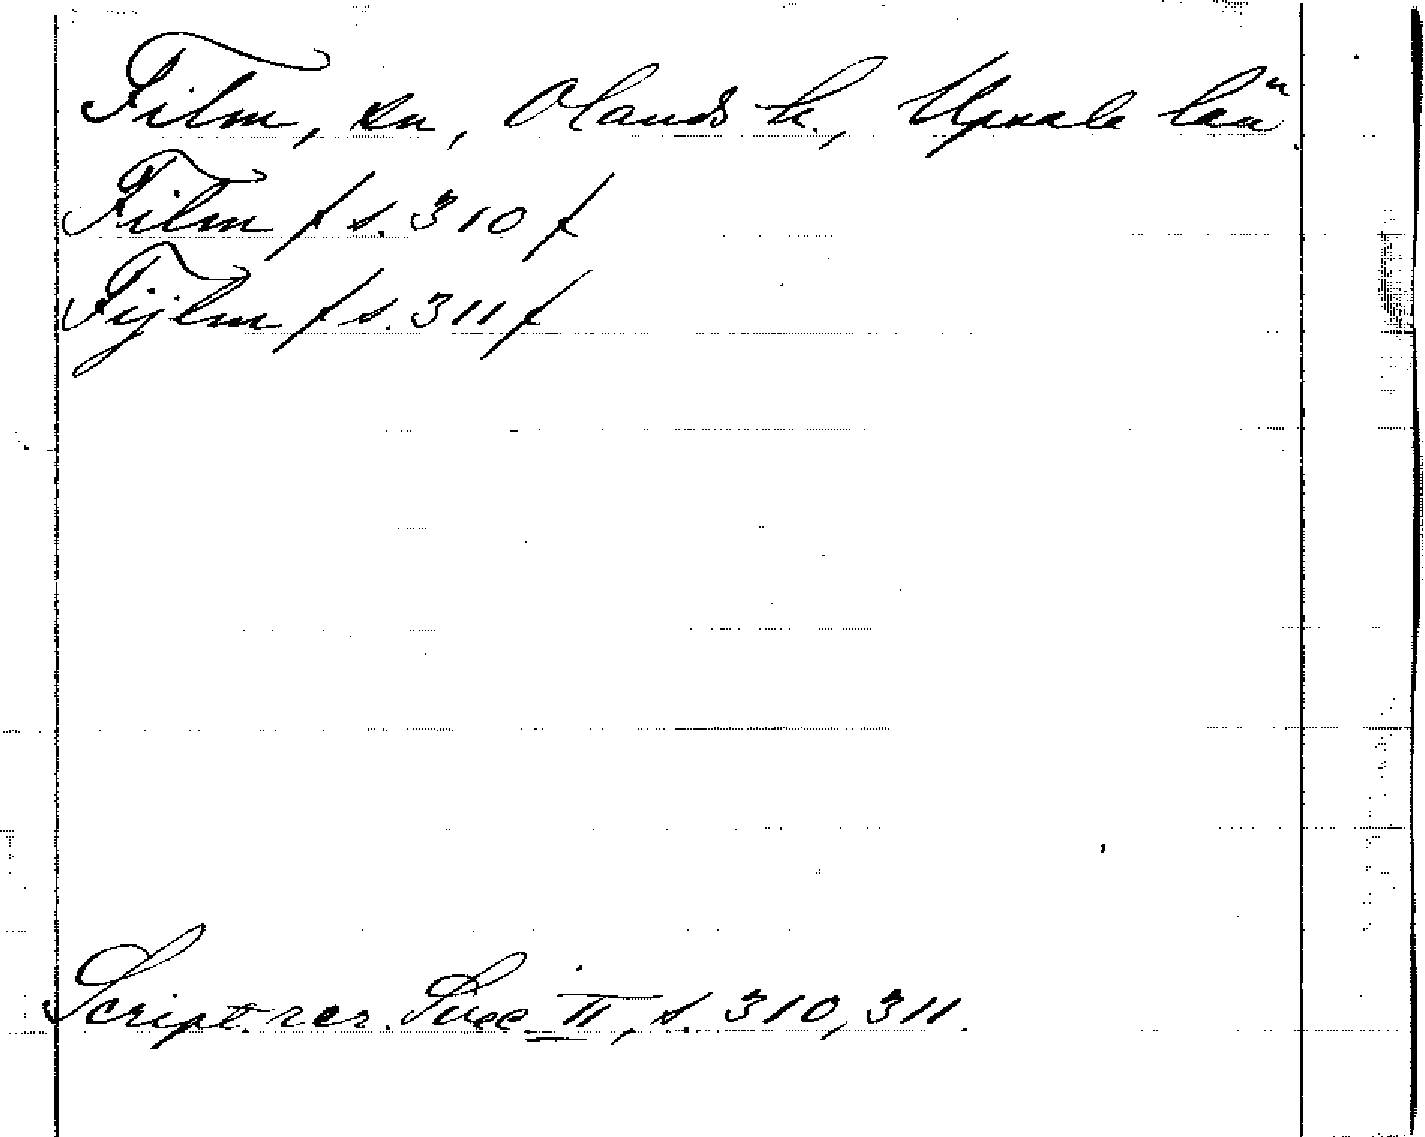 Film, sn, Olands h., Upsala län
Film / s. 310 /
Fijlm / s. 311 /
Script. rer. Svec. II, s. 310, 311.